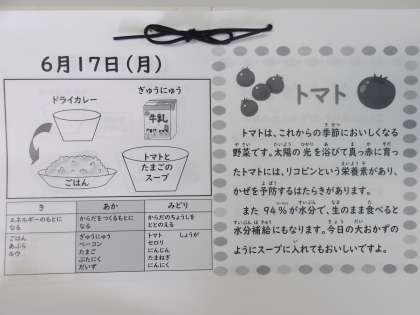 6月17日(月)
ドライカレー
ぎゅうにゅう
牛乳
ごはん
トマトと
たまごの
スープ
き　あか　みどり
エネルギーのもとに
なる
からだをつくるもとに
なる
からだのちょうしを
ととのえる
ごはん
あぶら
ルウ
ぎゅうにゅう
ベーコン
たまご
ぶたにく
だいず
トマト　しょうが
セロリ
にんじん
たまねぎ
にんにく
トマト
トマトは、これからの季節においしくなる
野菜です。太陽の光を浴びて真っ赤に育っ
たトマトには、リコピンという栄養素があり、
かぜを予防するはたらきがあります。
また 94％が水分で、生のまま食べると
水分補給にもなります。今日の大おかずの
ようにスープに入れてもおいしいですよ。